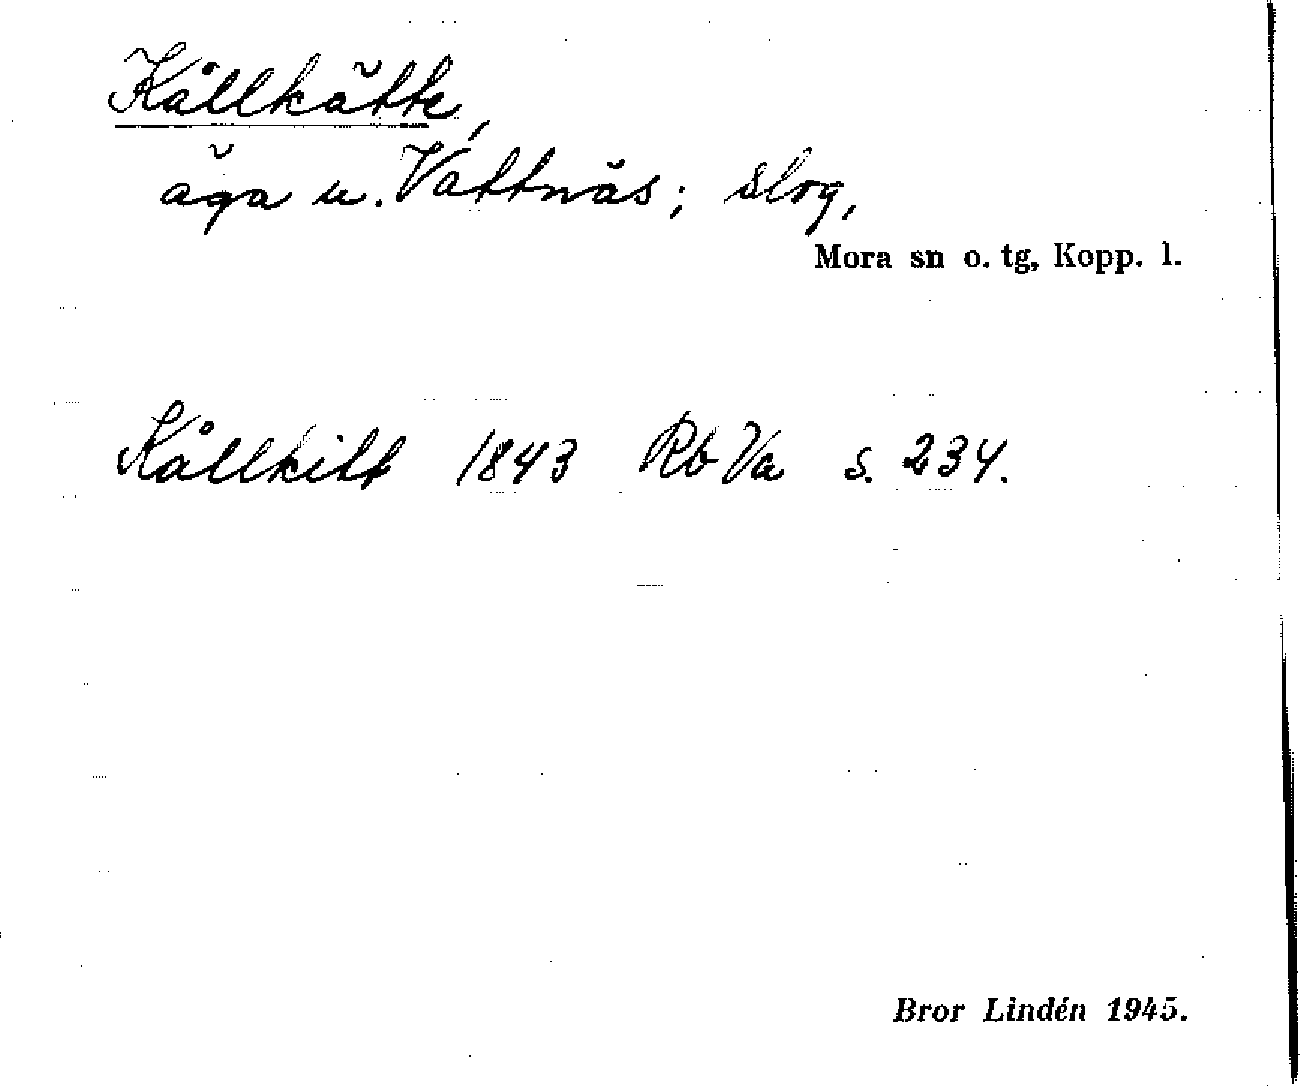 Kållkätte,
äga u. Vattnäs; slog,
Mora sn o. tg, Kopp. l.
Kållkitt 1843 Rb Va s. 234.
Bror Lindén 1945.